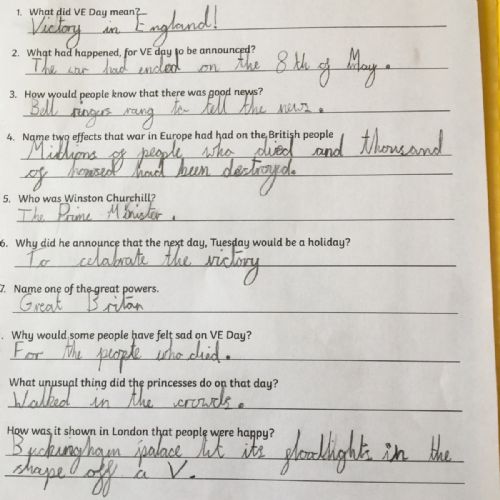 1. What did VE Day mean?
Victory in England!
2. What had happened, for VE day to be announced?
The war had ended on the 8th of May.
3. How would people know that there was good news?
Bell ringers rang to tell the news.
4. Name two effects that war in Europe had had on the British people
Millions of people who died and thousand
of housed had been destroyed.
5. Who was Winston Churchill?
The Prime Minister.
6. Why did he announce that the next day, Tuesday would be a holiday?
To celabrate the victory
7. Name one of the great powers.
Great Britan
. Why would some people have felt sad on VE Day?
For the people who died.
What unusual thing did the princesses do on that day?
Walked in the crowds.
How was it shown in London that people were happy?
Buckingham palace lit its floodlights in the
shape off a V.